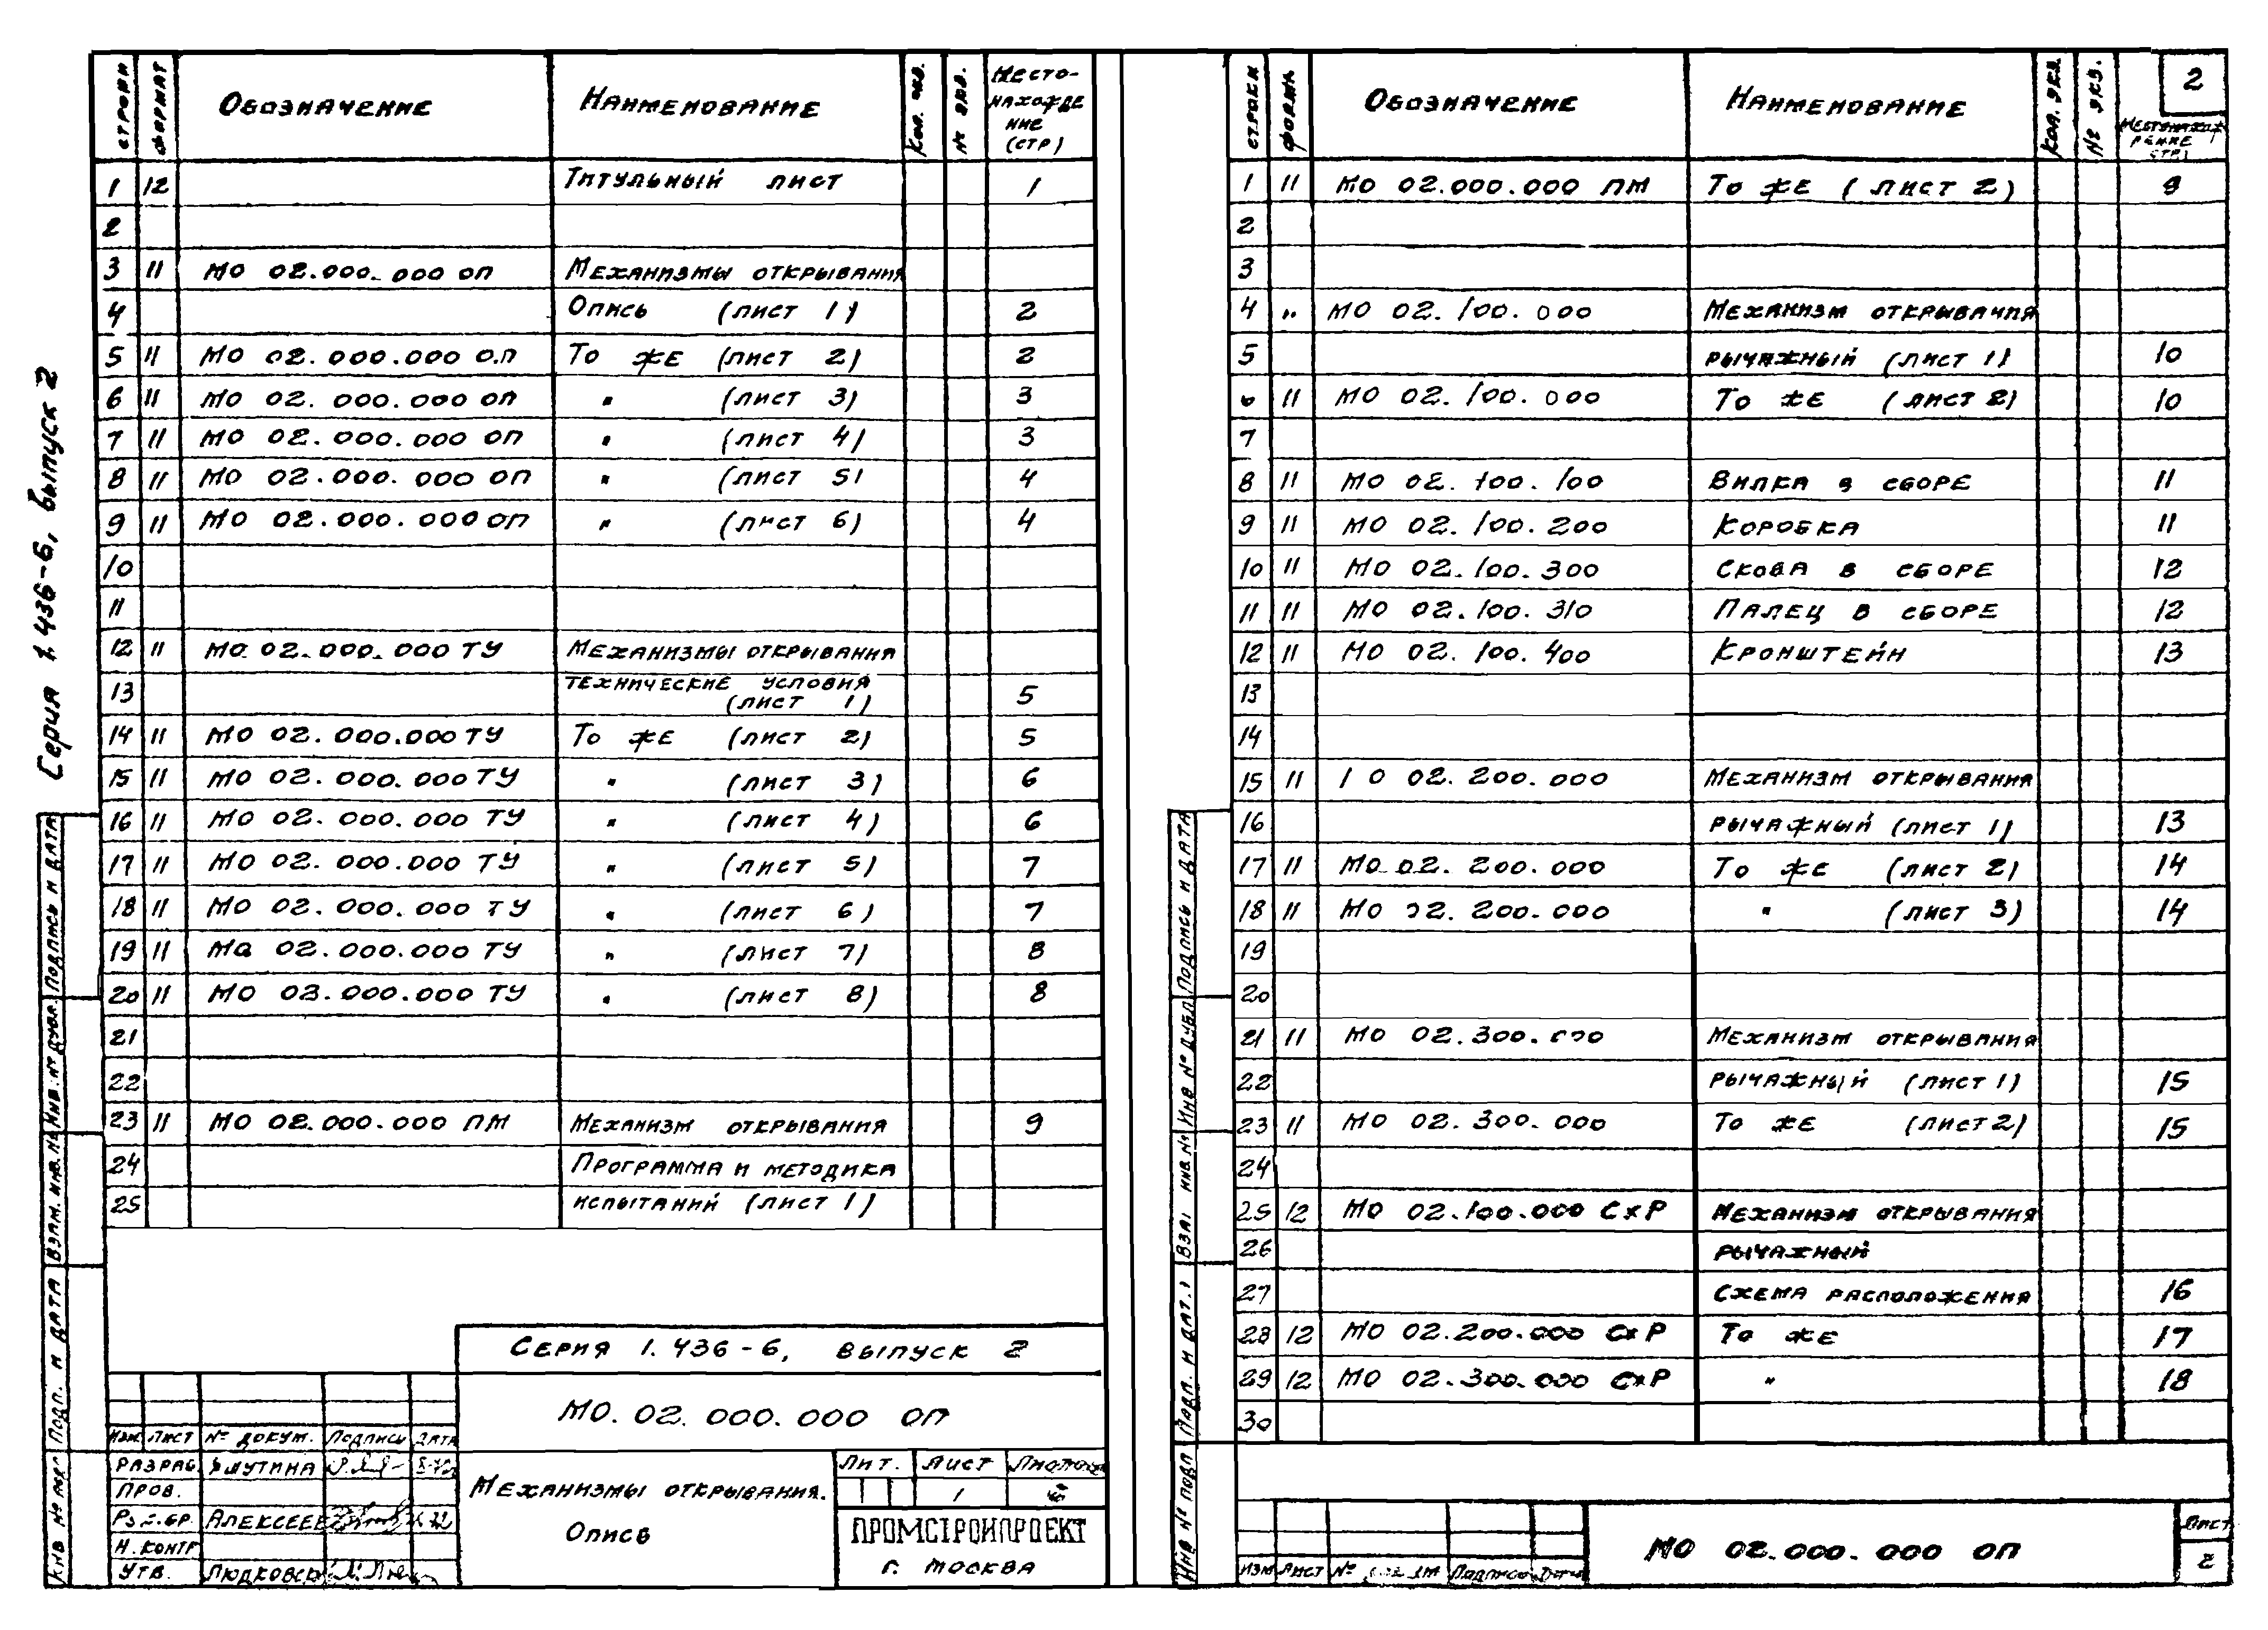 Серия 1.436-6, выпуск 2
строки формат Обозначение Наименование Кол. экз. № экз. Местонахождение (стр)
1 12 Титульный лист 1
2
3 11 МО 02.000.000 ОП Механизмы открывания
4 Опись (лист 1) 2
5 11 МО 02.000.000 ОП То же (лист 2) 2
6 11 МО 02.000.000 ОП " (лист 3) 3
7 11 МО 02.000.000 ОП " (лист 4) 3
8 11 МО 02.000.000 ОП " (лист 5) 4
9 11 МО 02.000.000 ОП " (лист 6) 4
10
11
12 11 МО 02.000.000 ТУ Механизмы открывания
13 технические условия (лист 1) 5
14 11 МО 02.000.000 ТУ То же (лист 2) 5
15 11 МО 02.000.000 ТУ " (лист 3) 6
16 11 МО 02.000.000 ТУ " (лист 4) 6
17 11 МО 02.000.000 ТУ " (лист 5) 7
18 11 МО 02.000.000 ТУ " (лист 6) 7
19 11 МО 02.000.000 ТУ " (лист 7) 8
20 11 МО 02.000.000 ТУ " (лист 8) 8
21
22
23 11 МО 02.000.000 ПМ Механизм открывания 9
24 Программа и методика
25 испытаний (лист 1)
Серия 1.436-6, выпуск 2
МО.02.000.000 ОП
Изм Лист № докум. Подпись Дата
Разраб. Яшутина
Пров.
Алексеев
Н.контр
Утв. Людковск
Механизмы открывания.
Опись
Лит. Лист Листов
1 6
ПРОМСТРОЙПРОЕКТ
г. Москва
Инв № подл Подп. и дата Взам. инв. № Инв. № дубл. Подпись и дата
2
строки форм. Обозначение Наименование Кол. экз. № экз. Местонахождение (стр)
1 11 МО 02.000.000 ПМ То же (лист 2) 9
2
3
4 " МО 02.100.000 Механизм открывания
5 рычажный (лист 1) 10
6 11 МО 02.100.000 То же (лист 2) 10
7
8 11 МО 02.100.100 Вилка в сборе 11
9 11 МО 02.100.200 Коробка 11
10 11 МО 02.100.300 Скоба в сборе 12
11 11 МО 02.100.310 Палец в сборе 12
12 11 МО 02.100.400 Кронштейн 13
13
14
15 11 МО 02.200.000 Механизм открывания
16 рычажный (лист 1) 13
17 11 МО 02.200.000 То же (лист 2) 14
18 11 МО 02.200.000 " (лист 3) 14
19
20
21 11 МО 02.300.000 Механизм открывания
22 рычажный (лист 1) 15
23 11 МО 02.300.000 То же (лист 2) 15
24
25 12 МО 02.100.000 СхР Механизм открывания
26 рычажный
27 схема расположения 16
28 12 МО 02.200.000 СхР То же 17
29 12 МО 02.300.000 СхР " 18
30
Изм Лист № Подпись Дата
МО 02.000.000 ОП
Лист
2
Инв № подл Подп. и дат. Взам инв № Инв № дубл Подпись и дата